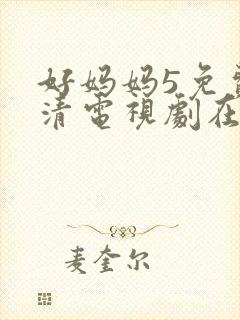 好妈妈5免
清電視劇在
麦奎尔